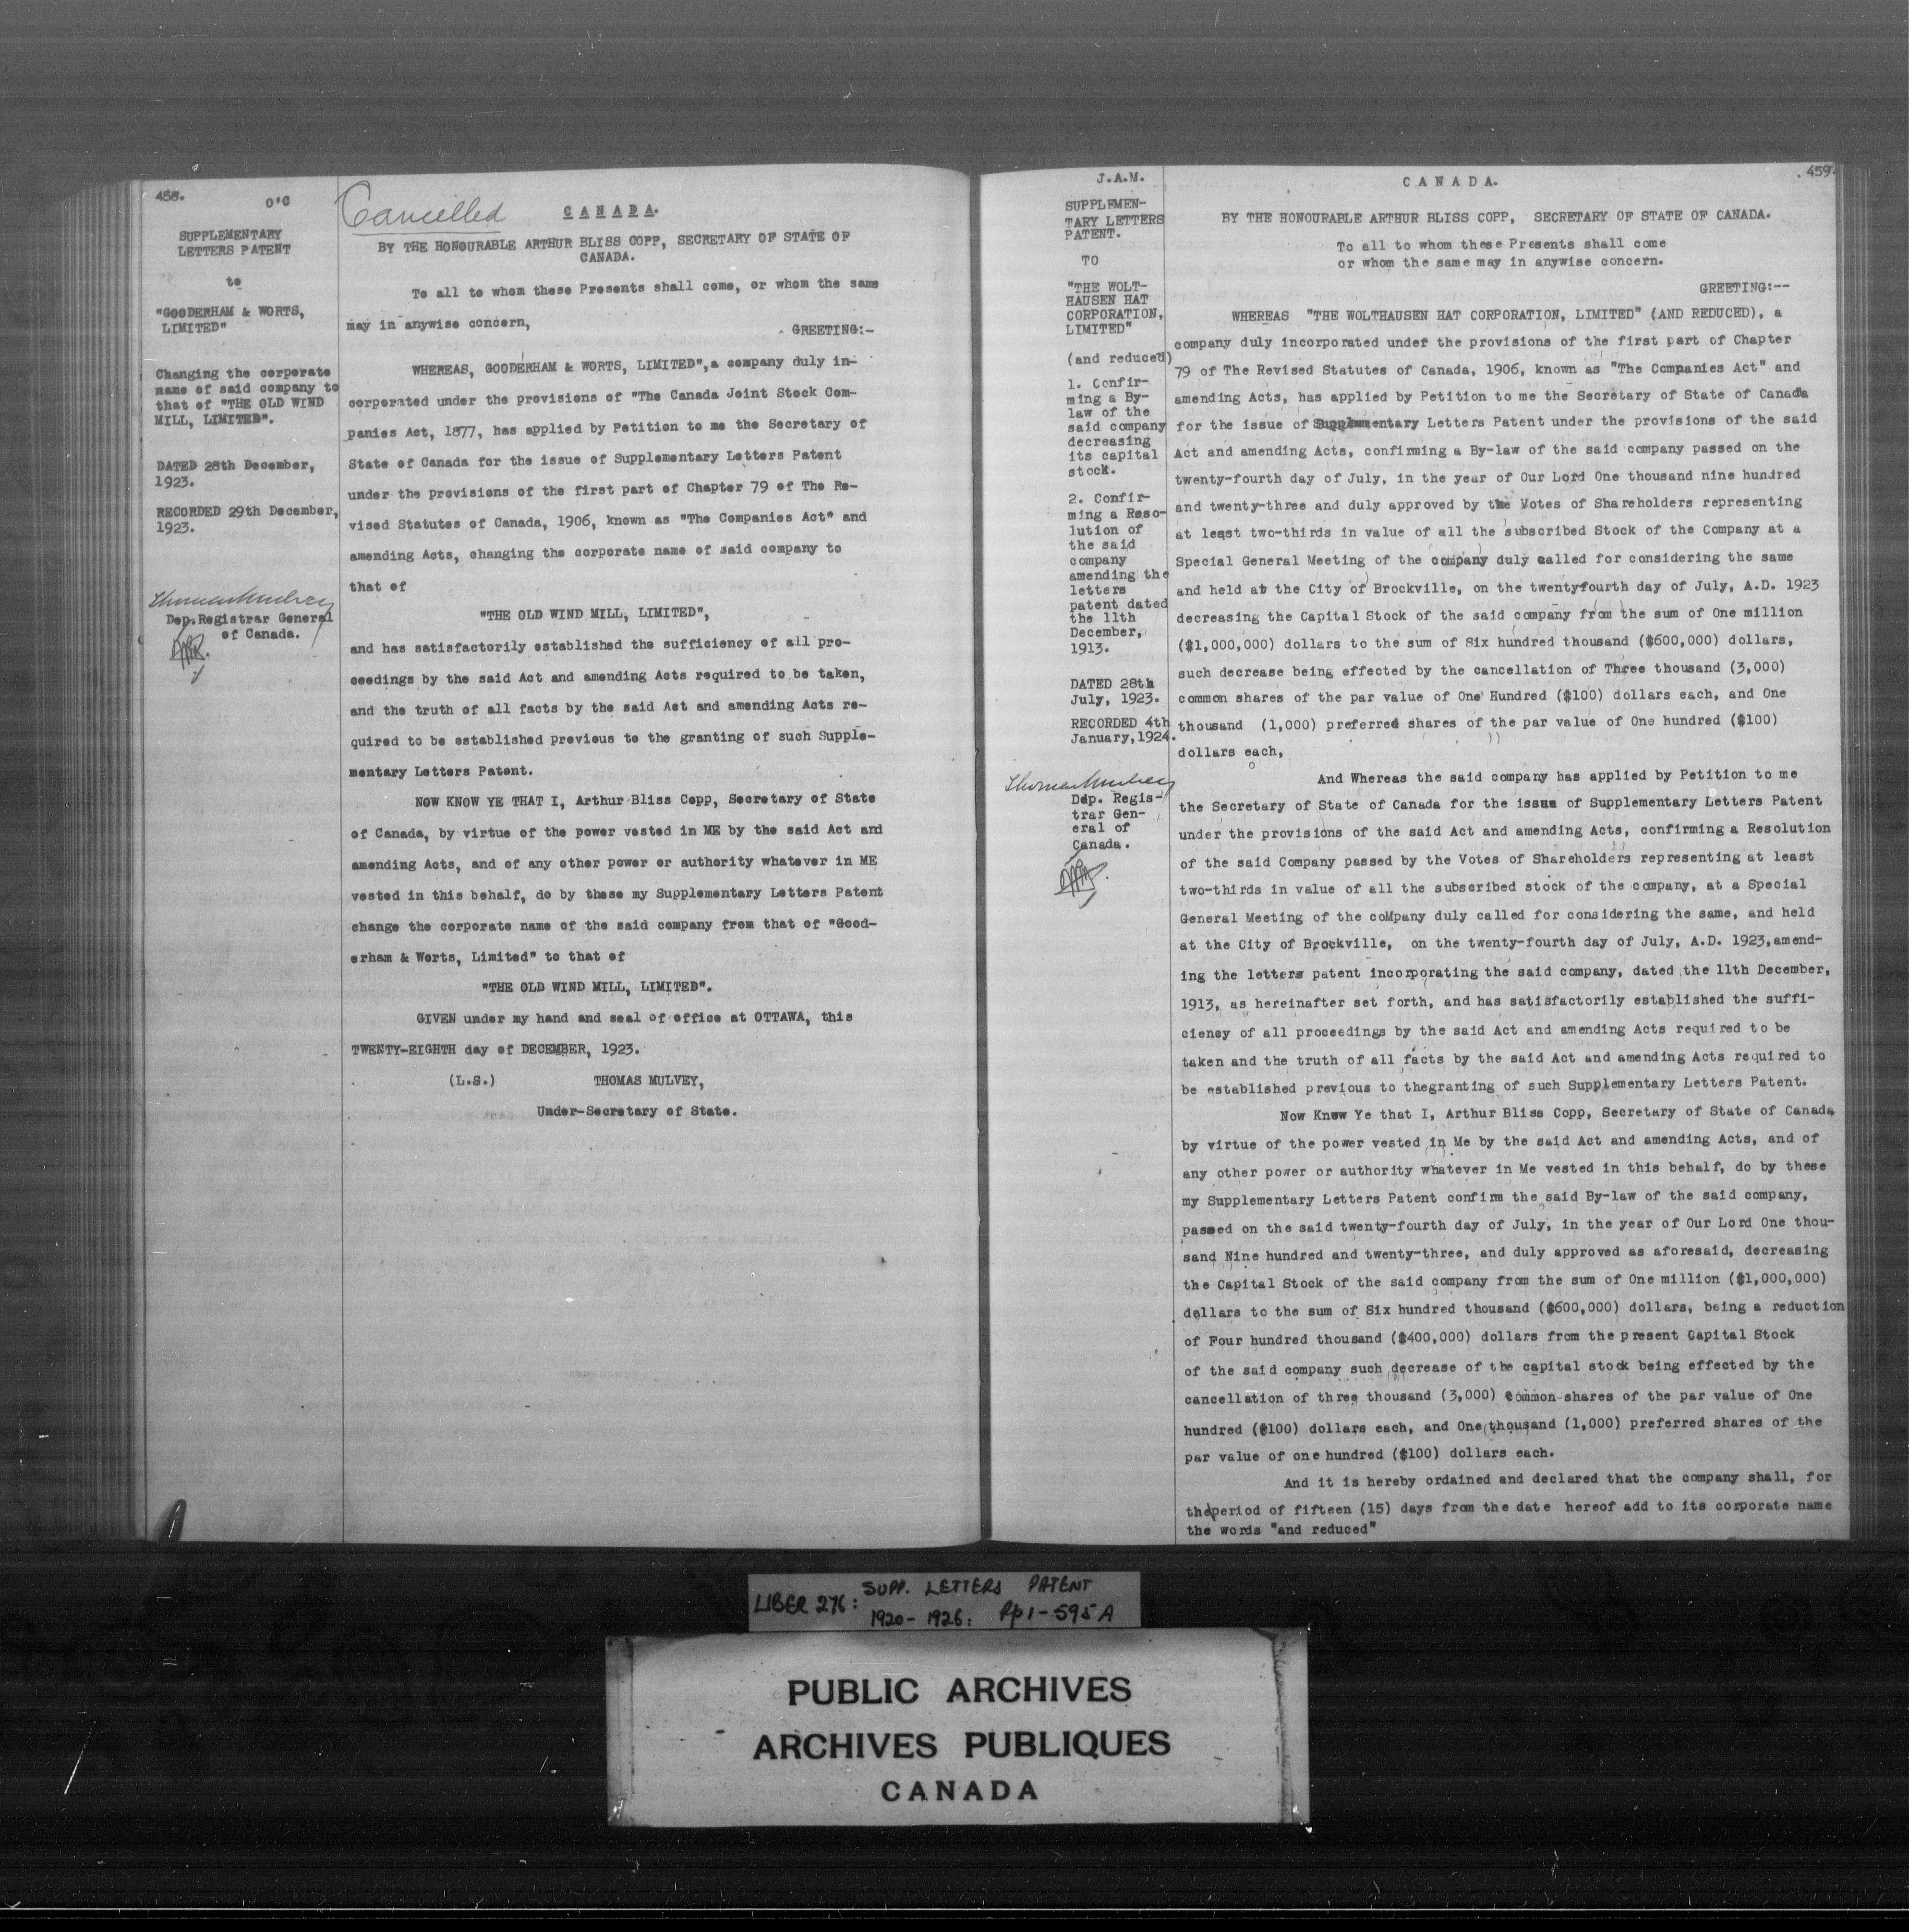 458.
O'C
SUPPLEMENTARY
LETTERS PATENT
to
"GOODERHAM & WORTS,
LIMITED"
Changing the corporate
name of said company to
that of "THE OLD WIND
MILL, LIMITED".
DATED 28th December,
1923.
RECORDED 29th December,
1923.
Dep.Registrar General
of Canada.
Cancelled
CANADA.
BY THE HONOURABLE ARTHUR BLISS COPP, SECRETARY OF STATE OF
CANADA.
To all to whom these Presents shall come, or whom the same
may in anywise concern,
GREETING:-
WHEREAS, GOODERHAM & WORTS, LIMITED", a company duly in-
corporated under the provisions of "The Canada Joint Stock Com-
panies Act, 1877, has applied by Petition to me the Secretary of
State of Canada for the issue of Supplementary Letters Patent
under the provisions of the first part of Chapter 79 of The Re-
vised Statutes of Canada, 1906, known as "The Companies Act" and
amending Acts, changing the corporate name of said company to
that of
"THE OLD WIND MILL, LIMITED",
and has satisfactorily established the sufficiency of all pro-
ceedings by the said Act and amending Acts required to be taken,
and the truth of all facts by the said Act and amending Acts re-
quired to be established previous to the granting of such Supple-
mentary Letters Patent.
NOW KNOW YE THAT I, Arthur Bliss Copp, Secretary of State
of Canada, by virtue of the power vested in ME by the said Act and
amending Acts, and of any other power or authority whatever in ME
vested in this behalf, do by these my Supplementary Letters Patent
change the corporate name of the said company from that of "Good-
erham & Worts, Limited" to that of
"THE OLD WIND MILL, LIMITED".
GIVEN under my hand and seal of office at OTTAWA, this
TWENTY-EIGHTH day of DECEMBER, 1923.
(L.S.) THOMAS MULVEY,
Under-Secretary of State.
459.
J.A.M.
SUPPLEMEN-
TARY LETTERS
PATENT.
TO
"THE WOLT-
HAUSEN HAT
CORPORATION,
LIMITED"
(and reduced)
1. Confir-
ming a By-
law of the
said company
decreasing
its capital
stock.
2. Confir-
ming a Reso-
lution of
the said
company
amending the
letters
patent dated
the 11th
December,
1913.
DATED 28th
July, 1923.
RECORDED 4th
January, 1924.
Dep. Regis-
trar Gen-
eral of
Canada.
CANADA.
BY THE HONOURABLE ARTHUR BLISS COPP, SECRETARY OF STATE OF CANADA.
To all to whom these Presents shall come
or whom the same may in anywise concern.
GREETING:--
WHEREAS "THE WOLTHAUSEN HAT CORPORATION, LIMITED" (AND REDUCED), a
company duly incorporated under the provisions of the first part of Chapter
79 of The Revised Statutes of Canada, 1906, known as "The Companies Act" and
amending Acts, has applied by Petition to me the Secretary of State of Canada
for the issue of Supplementary Letters Patent under the provisions of the said
Act and amending Acts, confirming a By-law of the said company passed on the
twenty-fourth day of July, in the year of Our Lord One thousand nine hundred
and twenty-three and duly approved by the Votes of Shareholders representing
at least two-thirds in value of all the subscribed Stock of the Company at a
Special General Meeting of the company duly called for considering the same
and held at the City of Brockville, on the twentyfourth day of July, A.D. 1923
decreasing the Capital Stock of the said company from the sum of One million
($1,000,000) dollars to the sum of Six hundred thousand ($600,000) dollars,
such decrease being effected by the cancellation of Three thousand (3,000)
common shares of the par value of One Hundred ($100) dollars each, and One
thousand (1,000) preferred shares of the par value of One hundred ($100)
dollars each,
And Whereas the said company has applied by Petition to me
the Secretary of State of Canada for the issue of Supplementary Letters Patent
under the provisions of the said Act and amending Acts, confirming a Resolution
of the said Company passed by the Votes of Shareholders representing at least
two-thirds in value of all the subscribed stock of the company, at a Special
General Meeting of the coMpany duly called for considering the same, and held
at the City of Brockville, on the twenty-fourth day of July, A.D. 1923,amend-
ing the letters patent incorporating the said company, dated the 11th December,
1913, as hereinafter set forth, and has satisfactorily established the suffi-
ciency of all proceedings by the said Act and amending Acts required to be
taken and the truth of all facts by the said Act and amending Acts required to
be established previous to thegranting of such Supplementary Letters Patent.
Now Know Ye that I, Arthur Bliss Copp, Secretary of State of Canada
by virtue of the power vested in Me by the said Act and amending Acts, and of
any other power or authority whatever in Me vested in this behalf, do by these
my Supplementary Letters Patent confirm the said By-law of the said company,
passed on the said twenty-fourth day of July, in the year of Our Lord One thou-
sand Nine hundred and twenty-three, and duly approved as aforesaid, decreasing
the Capital Stock of the said company from the sum of One million ($1,000,000)
dollars to the sum of Six hundred thousand ($600,000) dollars, being a reduction
of Four hundred thousand ($400,000) dollars from the present Capital Stock
of the said company such decrease of the capital stock being effected by the
cancellation of three thousand (3,000) common shares of the par value of One
hundred ($100) dollars each, and One thousand (1,000) preferred shares of the
par value of one hundred ($100) dollars each.
And it is hereby ordained and declared that the company shall, for
the period of fifteen (15) days from the date hereof add to its corporate name
the words "and reduced"
LIBER 276: SUPP. LETTERS PATENT
1920-1926: Pp 1-595A
PUBLIC ARCHIVES
ARCHIVES PUBLIQUES
CANADA